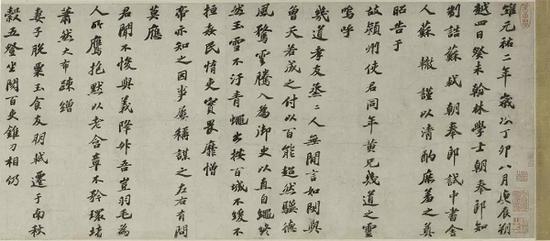 維元祐二年歲次丁卯八月庚辰朔
越四日癸未翰林學士朝奉郎知
制誥蘇軾朝奉郎試中書舍
人蘇轍謹以清酌庶羞之奠
昭告于
故潁州使君同年黃兄幾道之靈
嗚呼
幾道孝友烝烝人無間言如閔與
曾天若成之付以百能超然驥德
風騖雲騰入為御史以直自繩終
然玉雪不汙青蠅出按百城不緩不
搄姦民惰吏實畏靡憎
帝亦知之因事屢稱謀之左右有問
莫應
君聞不悛與義降升吾豈羽毛為
人所鷹抱默以老含章不矜環堵
蕭然大布疎繒
妻子脫粟玉食友朋軾遷于南秋
穀五登坐聞百吏錐刀相仍